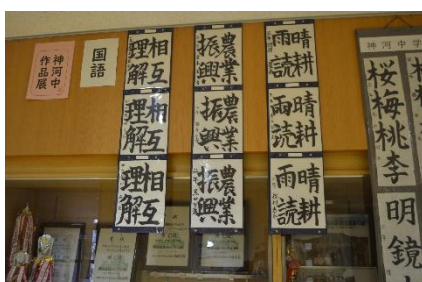 神河中
作品展
国語
相互
理解
相互
理解
相互
理解
農業
振興
農業
振興
農業
振興
晴耕
雨読
晴耕
雨読
晴耕
雨読
神河中学
桜梅桃李
明鏡